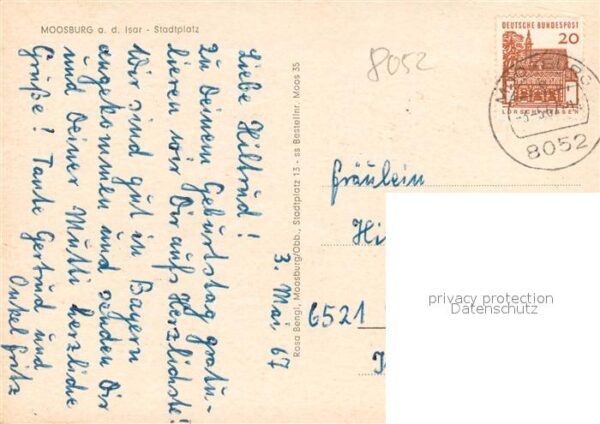 MOOSBURG a. d. Isar - Stadtplatz
Liebe Hiltrud!
Zu Deinem Geburtstag gratu-
lieren wir Dir aufs Herzlichste!
Wir sind gut in Bayern
angekommen und senden Dir
und Deiner Mutti herzliche
Grüße! Tante Gertrud und
Onkel Fritz
3. Mai 67
Rosa Bengl, Moosburg/Obb., Stadtplatz 13 - ss Bestellnr. Moos 35
8052
DEUTSCHE BUNDESPOST
20
8052
Fräulein
Hi
6521
privacy protection
Datenschutz